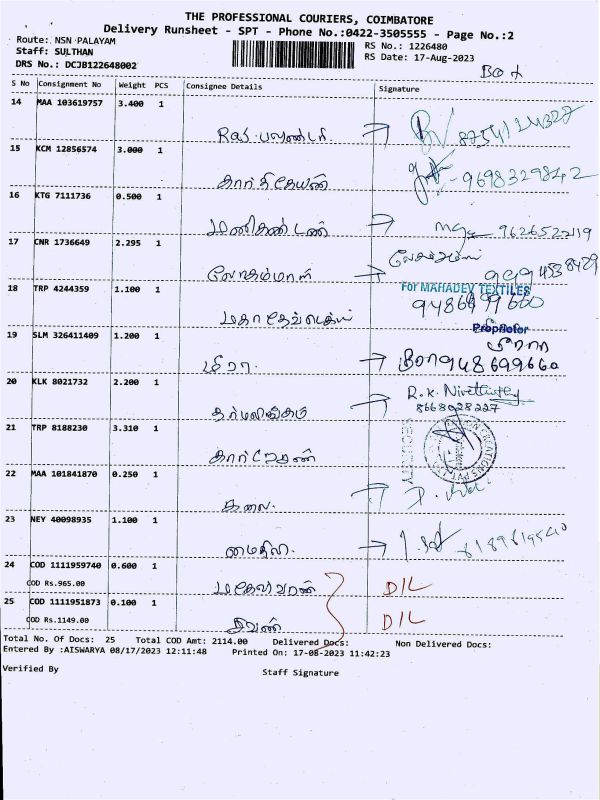 THE PROFESSIONAL COURIERS, COIMBATORE
Delivery Runsheet - SPT - Phone No.:0422-3505555 - Page No.:2
Route: NSN PALAYAM
RS No.: 1226480
Staff: SULTHAN
RS Date: 17-Aug-2023
DRS No.: DCJB122648002
Box
S No Consignment No Weight PCS Consignee Details Signature
14 MAA 103619757 3.400 1
15 KCM 12856574 3.000 1
கார்திகேயன் 9698329842
16 KTG 7111736 0.500 1
மணிகண்டன் 9626522119
17 CNR 1736649 2.295 1
லோகம்மாள்
18 TRP 4244359 1.100 1
For MAHADEV TEXTILES
9486699660
Proprietor
19 SLM 326411409 1.200 1
மீரா
20 KLK 8021732 2.200 1
தர்மலிங்கம் R.K. 8668028227
21 TRP 8188230 3.310 1
SECURITY
22 MAA 101841870 0.250 1
கலை.
23 NEY 40098935 1.100 1
மைதிலி.
24 COD 1111959740 0.600 1
COD Rs.965.00
மகேஸ்வரன் D/L
25 COD 1111951873 0.100 1
COD Rs.1149.00
D/L
Total No. Of Docs: 25 Total COD Amt: 2114.00 Delivered Docs: Non Delivered Docs:
Entered By :AISWARYA 08/17/2023 12:11:48 Printed On: 17-08-2023 11:42:23
Verified By
Staff Signature